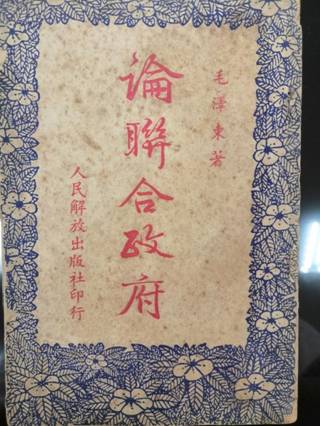 毛澤東著
論聯合政府
人民解放出版社印行